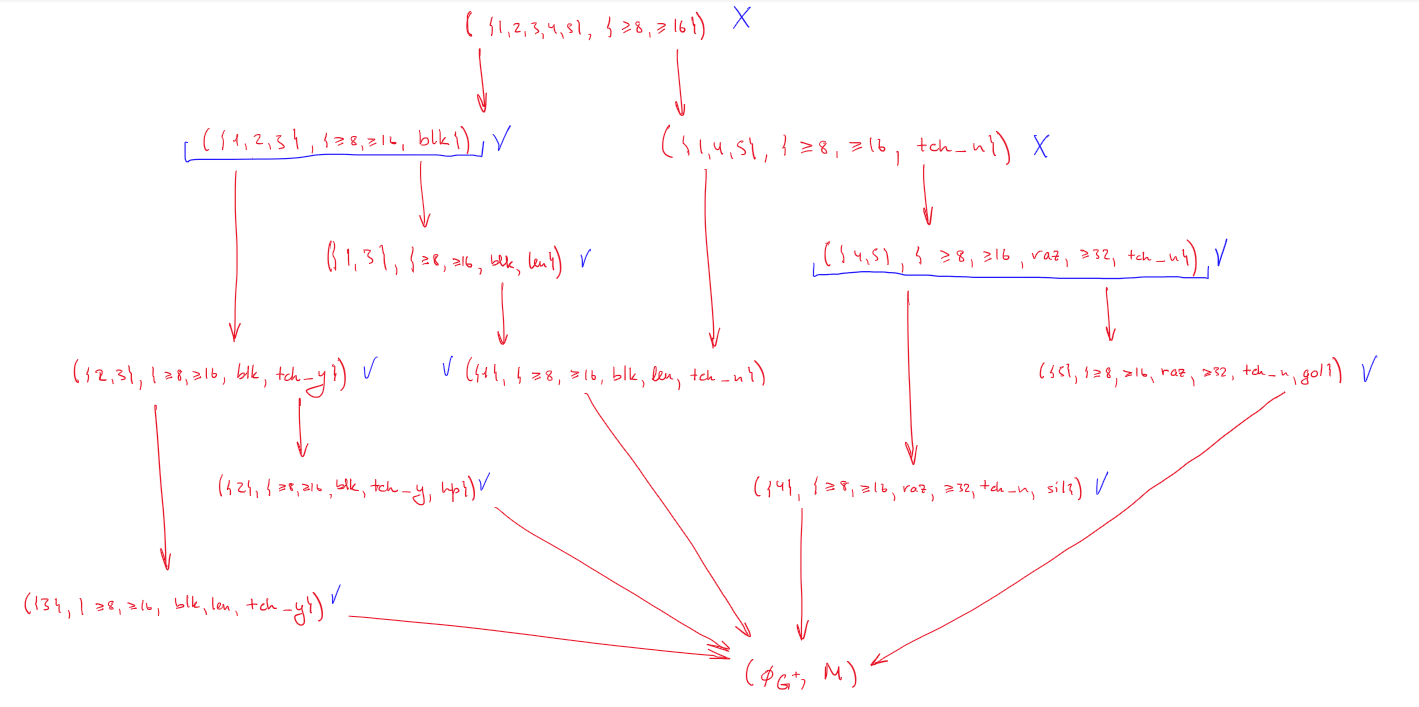 ( {1,2,3,4,5}, { ≥8, ≥16}) X
({1,2,3}, {≥8, ≥16, blk}) √
({1,4,5}, { ≥8, ≥16, tch_n}) X
({1,3}, {≥8, ≥16, blk, len}) √
({4,5}, { ≥8, ≥16, raz, ≥32, tch_n}) √
({2,3}, {≥8, ≥16, blk, tch_y}) √
√ ({1}, { ≥8, ≥16, blk, len, tch_n})
({5}, {≥8, ≥16, raz, ≥32, tch_n, gol}) √
({2}, {≥8, ≥16, blk, tch_y, hp}) √
({4}, {≥8, ≥16, raz, ≥32, tch_n, sil}) √
({3}, {≥8, ≥16, blk, len, tch_y}) √
(ϕG+, M)